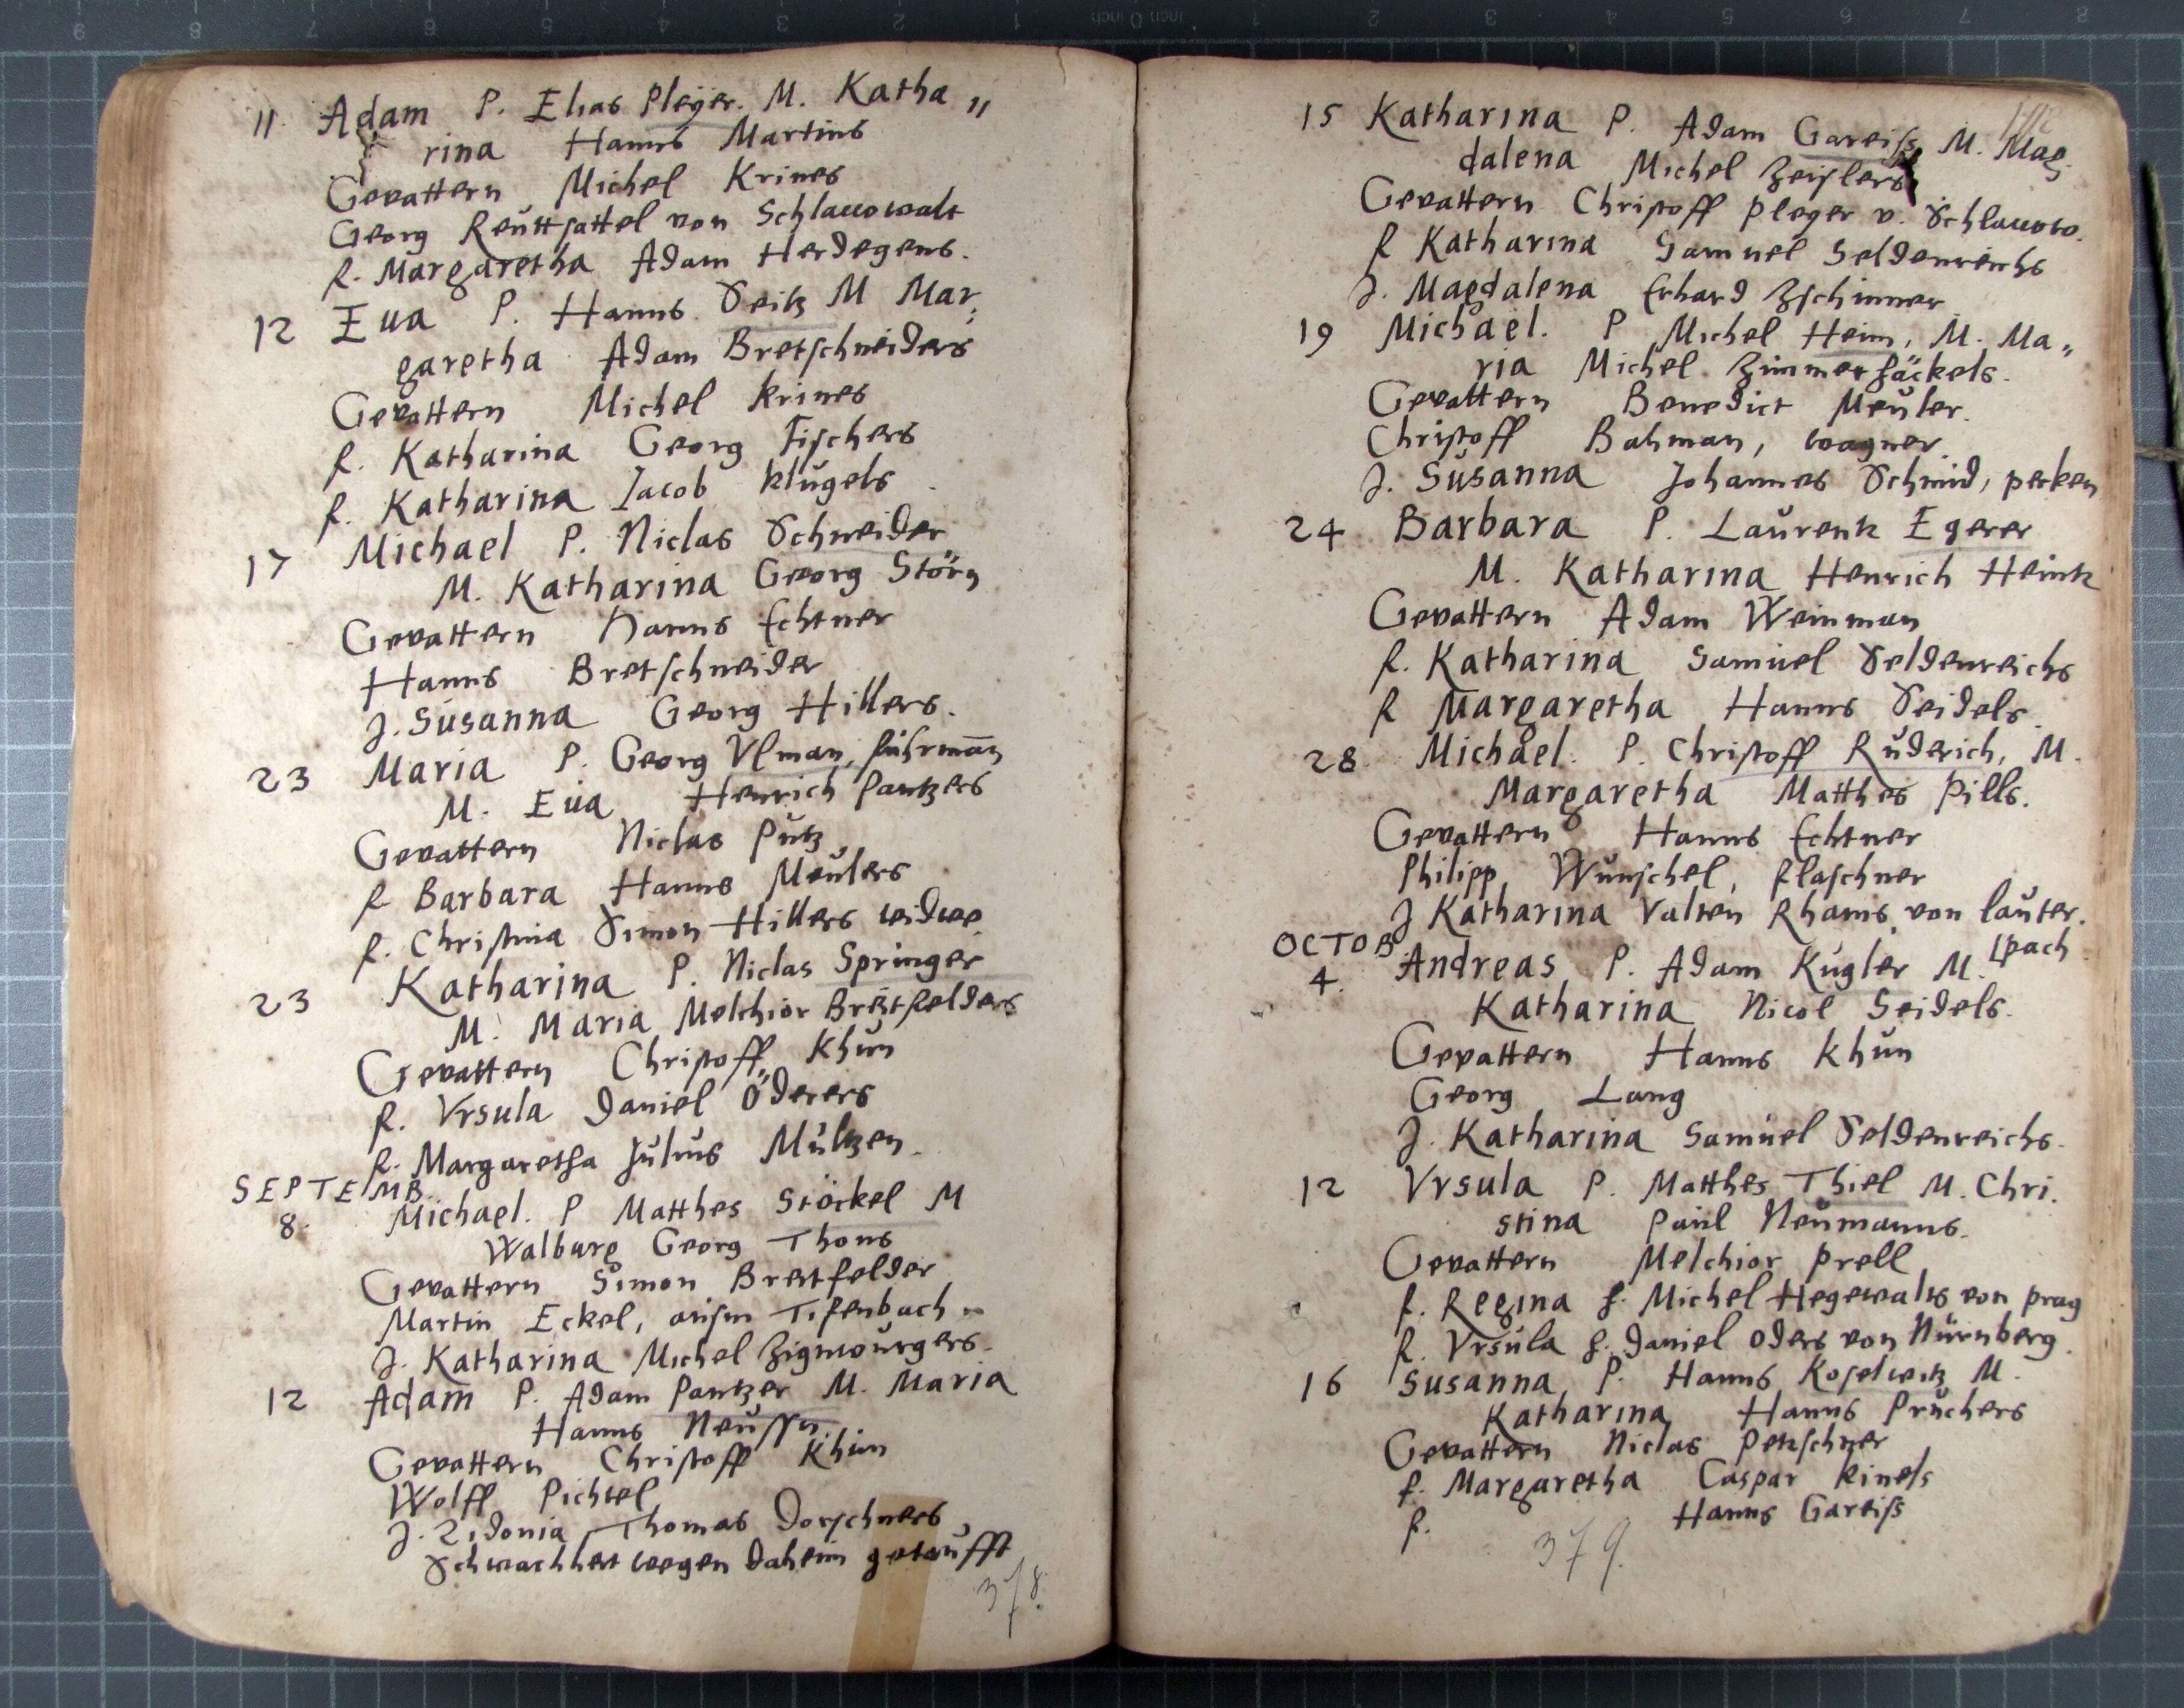 11. Adam P. Elias Pleÿer. M. Katha„
rina Hanns Martins
Gevattern Michel Krines
Georg Reuttsattel von Schlawowalt
f. Margaretha Adam Herdegens.
12 Eua P. Hanns Seitz M Mar,
garetha Adam Bretschneiders
Gevattern Michel Krines
f. Katharina Georg Fischers
f. Katharina Jacob Klügels
17 Michael P. Niclas Schneider
M. Katharina Georg Störn
Gevattern Hanns Echtner
Hanns Bretschneider
J. Susanna Georg Hillers.
23 Maria P. Georg Vlman, fuhrman̄
M. Eua Henrich Pantzers
Gevattern Niclas Putz
f Barbara Hanns Meulers
f. Christina Simon Hillers widwe
23 Katharina P. Niclas Springer
M. Maria Melchior Breitfelders
Gevattern Christoff Khun
f. Vrsula Daniel Öderers
f. Margaretha Julius Mültzen.
SEPTEMB
8. Michael. P Matthes Stöckel M
Walburg Georg Thoms
Gevattern Simon Breitfelder
Martin Eckel, Tifenbach
J. Katharina Michel Zigmourgers.
12 Adam P. Adam Pantzer M. Maria
Hanns Neussn.
Gevattern Christoff Khün
Wolff Pichtel
J. Zidonia Thomas Dorschners
Schwachheit wegen daheim getaufft
378.
15 Katharina P. Adam Gareiss M. Mag
dalena Michel Zeislers
Gevattern Christoff Pleyer v. Schlawow.
f Katharina Samuel Seldenreichs
J. Magdalena Erhard Zschinner
19 Michael. P Michel Heim, M. Ma„
ria Michel Zimmerhäckels.
Gevattern Benedict Meuler.
Christoff Bahman, wagner.
J. Susanna Johannes Schmid, pecken
24 Barbara P. Laurentz Egerer
M. Katharina Henrich Heintz
Gevattern Adam Weinman
f. Katharina Samuel Seldenreichs
f Margaretha Hanns Seidels.
28. Michael. P. Christoff Ruderich, M.
Margaretha Matthes Pills.
Gevattern Hanns Echtner
Philipp Wunschel, flaschner
J Katharina Valten Rhams von lauter.
OCTOB. [pach
4. Andreas P. Adam Kugler M.
Katharina Nicol Seidels.
Gevattern Hanns Khun
Georg Lang
J. Katharina Samuel Seldenreichs.
12 Vrsula P. Matthes Thiel M. Chri.
stina Paul Neumanns.
Gevattern Melchior Prell
f. Regina h. Michel Hegewalts von Prag
f. Vrsula h. Daniel Oders von Nürnberg.
16 Susanna P. Hanns Koselwitz M.
Katharina Hanns Pruchers
Gevattern Niclas Petzschner
f. Margaretha Caspar Kiness
f. Hanns Gareiss
379.